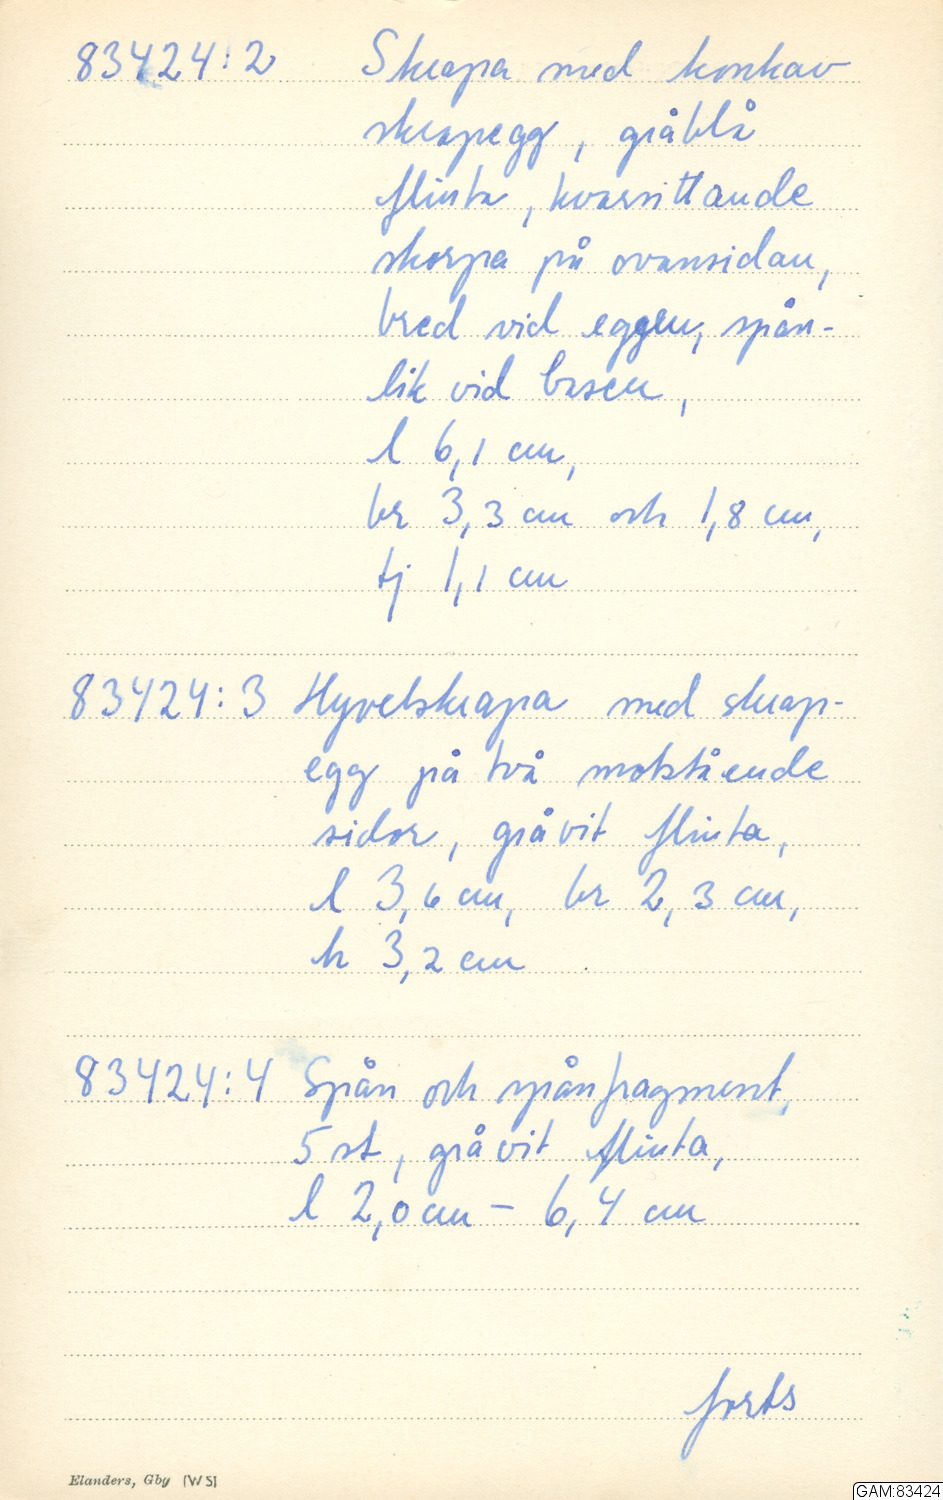 83424:2 Skrapa med konkav
skrapegg, gråblå
flinta, kvarsittande
skorpa på ovansidan,
bred vid eggen, spån-
lik vid basen,
l 6,1 cm,
br 3,3 cm och 1,8 cm,
tj 1,1 cm
83424:3 Hyvelskrapa med skrap-
egg på två motstående
sidor, gråvit flinta,
l 3,6 cm, br 2,3 cm,
h 3,2 cm
83424:4 Spån och spånfragment,
5 st, gråvit flinta,
l 2,0 cm – 6,4 cm
forts
Elanders, Gby [W5]
GAM:83424